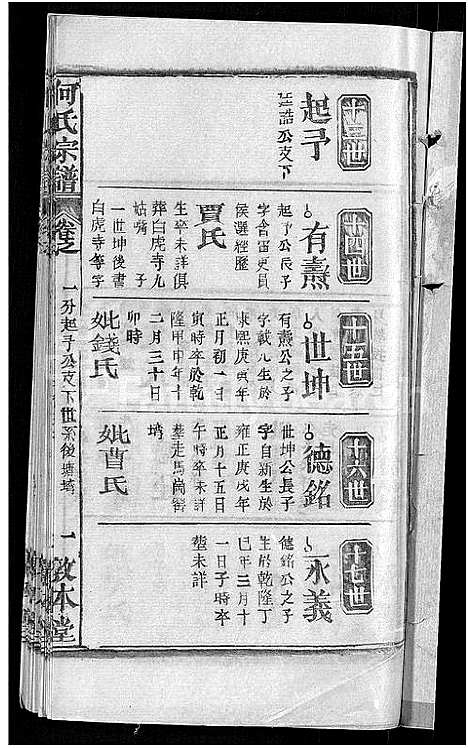 十三世
起予
公支下
十四世
有燾
起予公長子
字含雷更員
候選經歷
賈氏
生卒未詳俱
葬白虎寺九
姑嘴子
一世坤後書
白虎寺等字
十五世
世坤
有燾公之子
字載九生於
康熙庚寅年
正月初一日
寅時卒於乾
隆甲申年十
二月三十日
卯時
妣錢氏
十六世
德銘
世坤公長子
字自新生於
雍正庚戌年
正月十五日
午時卒未詳
塟走馬崗窖
塆
妣曹氏
十七世
永義
德銘公之子
生於乾隆丁
巳年三月十
一日子時卒
塟未詳
何氏宗譜
卷之
一分起予公支下世系後塘塆
一敦本堂